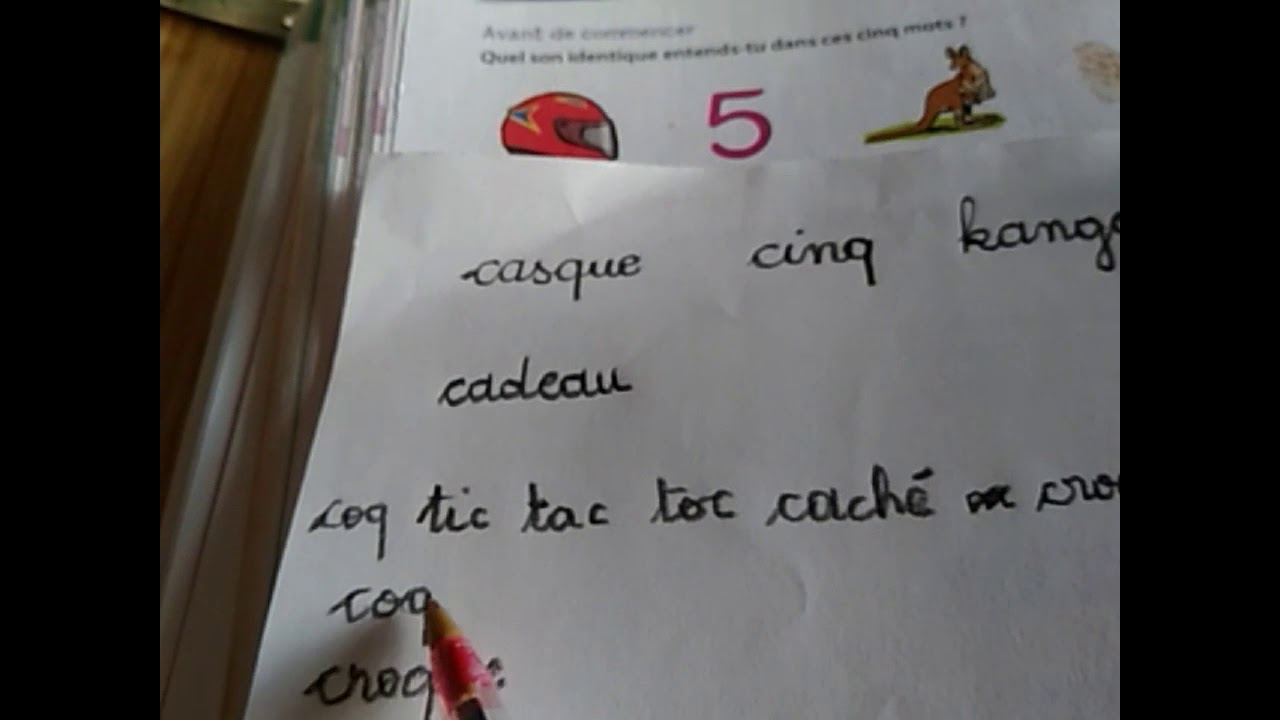 Avant de commencer
Quel son identique entends-tu dans ces cinq mots ?
5
casque cinq
cadeau
coq tic tac toc caché
coq